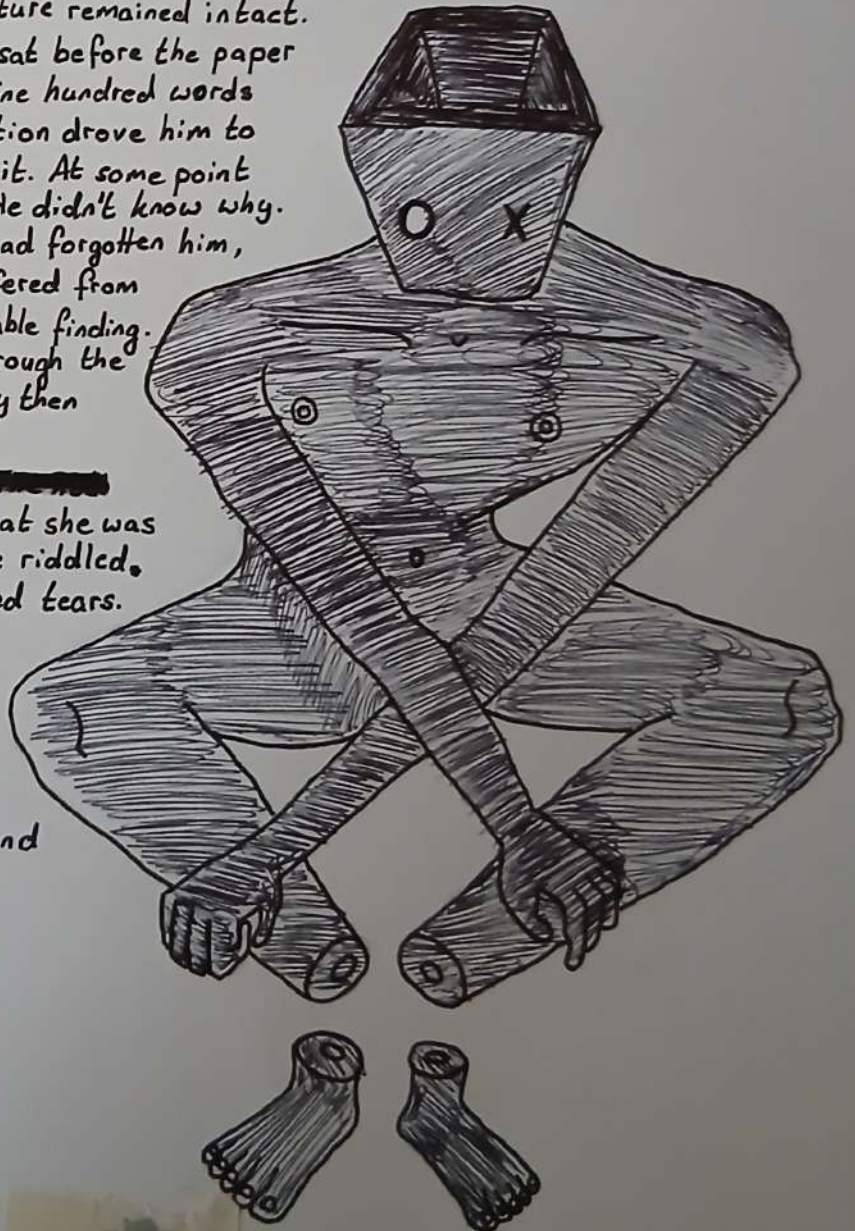 ture remained intact.
sat before the paper
ne hundred words
tion drove him to
it. At some point
He didn't know why.
ad forgotten him,
fered from
ble finding.
rough the
y then
at she was
e riddled.
ed tears.
nd
O X